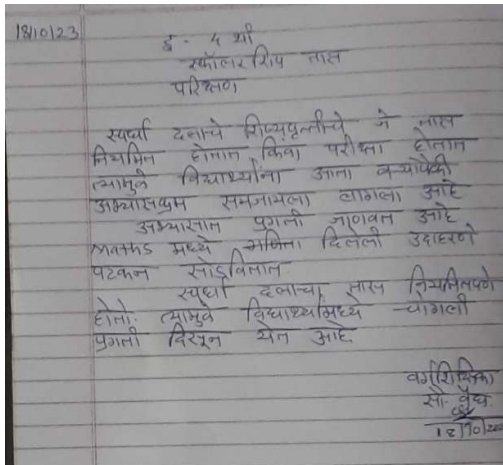 18/10/23
इ - ४ थी
स्कॉलरशिप तास
परिक्षण
स्पर्धा दलाचे शिष्यवृत्तीचे जे तास
नियमित होतात किंवा परीक्षा होतात
त्यामुळे विद्यार्थ्यांना आता बऱ्यापैकी
अभ्यासक्रम समजायला लागला आहे
अभ्यासात प्रगती जाणवत आहे
Maths मध्ये गणिता दिलेली उदाहरणे
पटकन सोडवितात
स्पर्धा दलाचा तास नियमितपणे
होतो. त्यामुळे विद्यार्थ्यांमध्ये चांगली
प्रगती दिसून येत आहे.
वर्गशिक्षिका
सौ. वैद्य
18/10/202